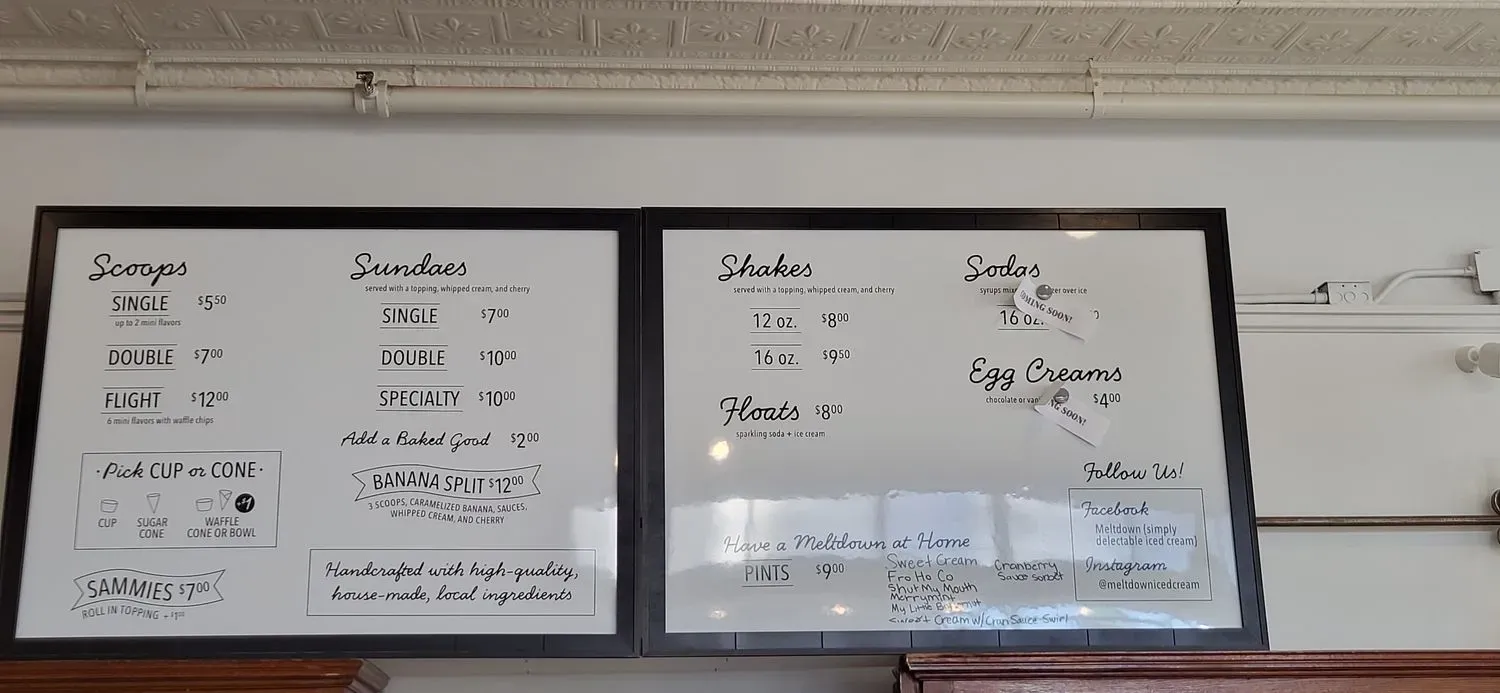 Scoops
SINGLE $5.50
up to 2 mini flavors
DOUBLE $7.00
FLIGHT $12.00
6 mini flavors with waffle chips
·Pick CUP or CONE·
CUP
SUGAR CONE
+$1
WAFFLE CONE OR BOWL
SAMMIES $7.00
ROLL IN TOPPING + $1.00
Sundaes
served with a topping, whipped cream, and cherry
SINGLE $7.00
DOUBLE $10.00
SPECIALTY $10.00
Add a Baked Good $2.00
BANANA SPLIT $12.00
3 SCOOPS, CARAMELIZED BANANA, SAUCES,
WHIPPED CREAM, AND CHERRY
Handcrafted with high-quality,
house-made, local ingredients
Shakes
served with a topping, whipped cream, and cherry
12 oz. $8.00
16 oz. $9.50
Floats $8.00
sparkling soda + ice cream
Sodas
syrups over ice
SOON!
16 oz.
Egg Creams
chocolate or $4.00
SOON!
Have a Meltdown at Home
PINTS $9.00
Sweet Cream
Fro Ho Co
Shut My Mouth
Merrymint
My Little
Cream w/Cran Sauce Swirl
Cranberry
Sauce sorbet
Follow Us!
Facebook
Meltdown (simply
delectable iced cream)
Instagram
@meltdownicedcream